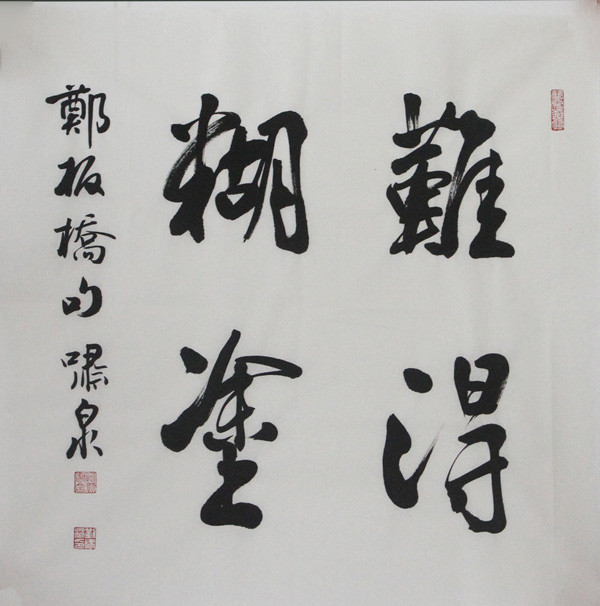 難得
糊塗
鄭板橋句 嘯泉